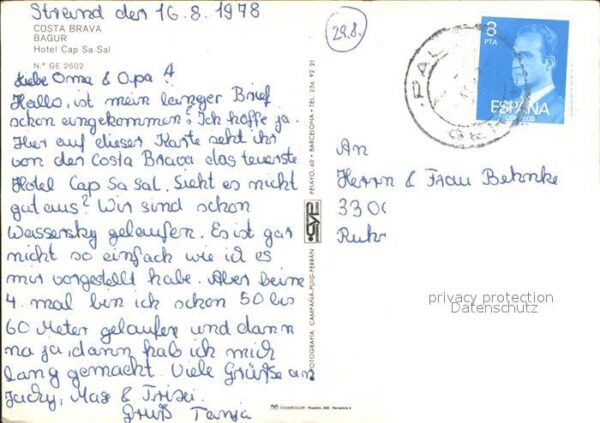 Strand den 16.8.1978
COSTA BRAVA
BAGUR
Hotel Cap Sa Sal
N.° GE 2602
Liebe Oma & Opa !
Hallo, ist mein langer Brief
schon eingekommen? Ich hoffe ja.
Hier auf dieser Karte seht ihr
von der Costa Brava das teuerste
Hotel Cap Sa Sal. Sieht es nicht
gut aus? Wir sind schon
Wassersky gelaufen. Es ist gar
nicht so einfach wie ich es
mir vorgestellt habe. Aber beim
4. mal bin ich schon 50 bis
60 Meter gelaufen und dann
na ja, dann hab ich mich
lang gemacht. Viele Grüße an
Jacky, Max &
Gruß Tanja
29.8.
8
PTA
ESPAÑA
CORREOS
PAL
GER
An
Herrn & Frau Behnke
330
Ruhr
privacy protection
Datenschutz
FOTOGRAFIA CAMPAÑA-PUIG-FERRAN
PELAYO, 60 • BARCELONA • TEL. 236 92 21